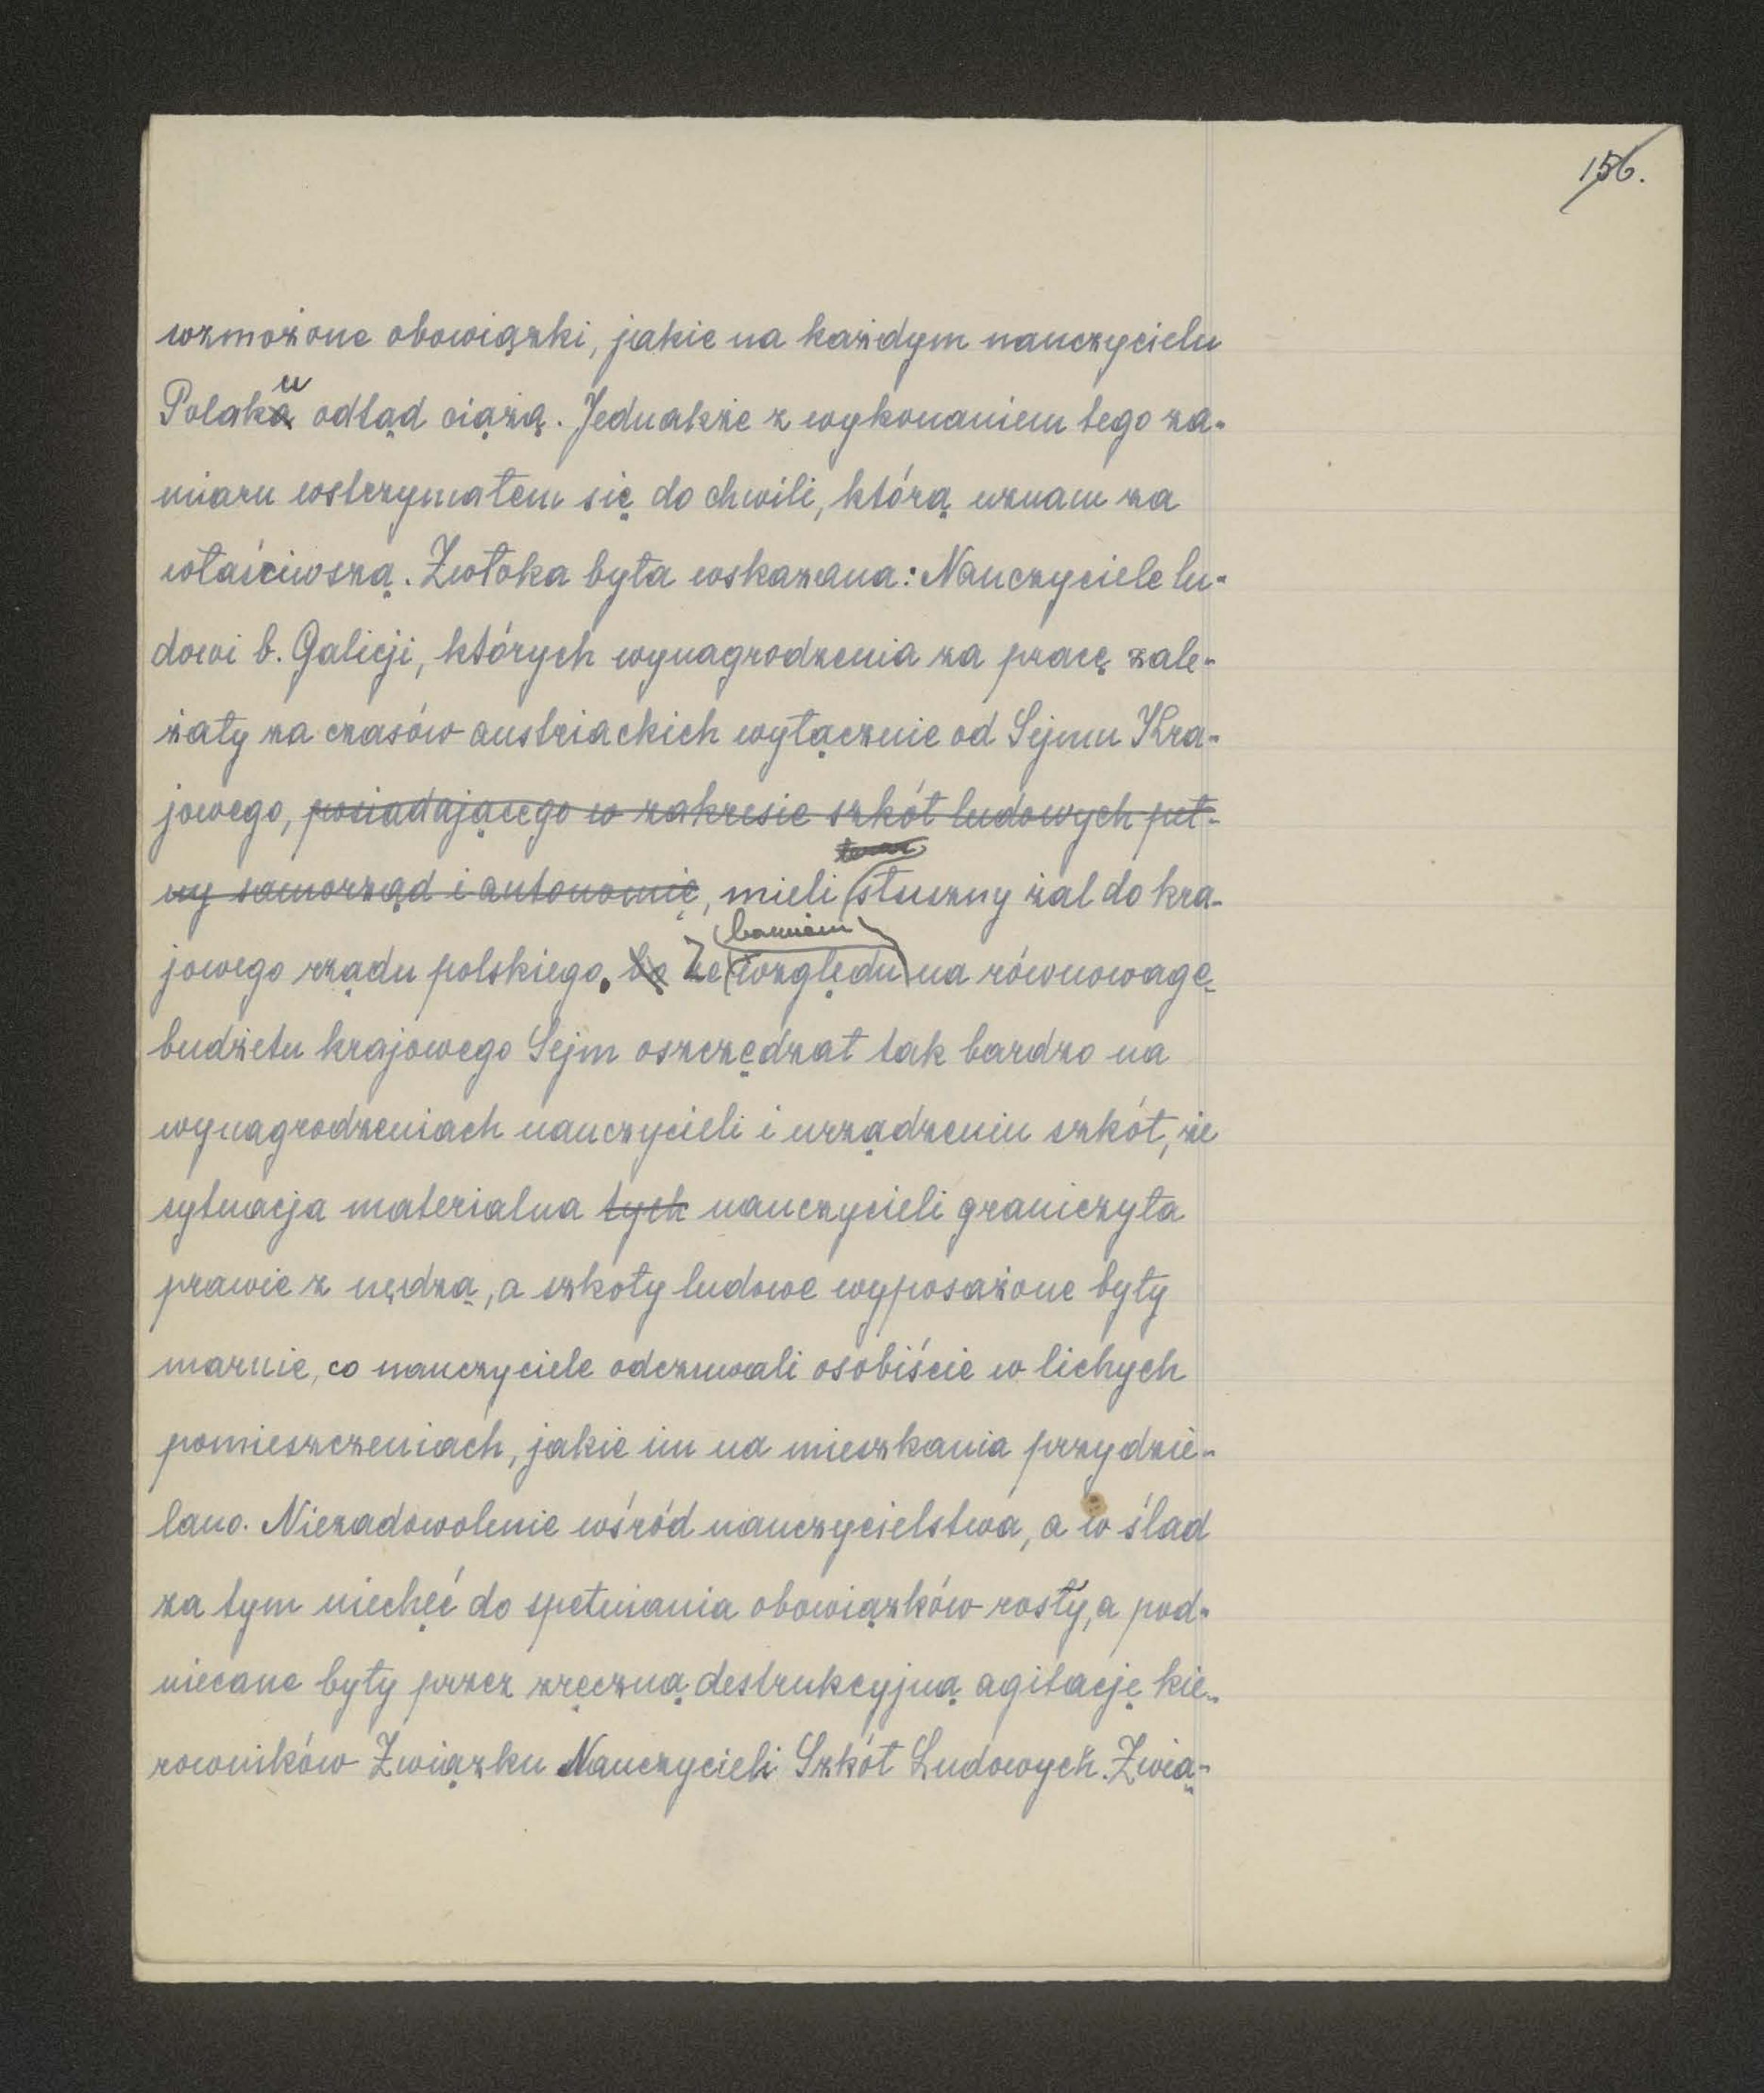 156.
wzmożone obowiązki, jakie na każdym nauczycielu
Polaku odtąd ciążą. Jednakże z wykonaniem tego za-
miaru wstrzymałem się do chwili, którą uznam za
właściwszą. Zwłoka była wskazana: Nauczyciele lu-
dowi b. Galicji, których wynagrodzenia za pracę zale-
żały za czasów austriackich wyłącznie od Sejmu Kra-
jowego, posiadającego w zakresie szkół ludowych peł-
ny samorząd i autonomię, mieli słuszny żal do kra-
bowiem
jowego rządu polskiego. bo Ze względu na równowagę
budżetu krajowego Sejm oszczędzał tak bardzo na
wynagrodzeniach nauczycieli i urządzeniu szkół, że
sytuacja materialna tych nauczycieli graniczyła
prawie z nędzą, a szkoły ludowe wyposażone były
marnie, co nauczyciele odczuwali osobiście w lichych
pomieszczeniach, jakie im na mieszkania przydzie-
lano. Niezadowolenie wśród nauczycielstwa, a w ślad
za tym niechęć do spełniania obowiązków rosły, a pod-
niecane były przez zręczną destrukcyjną agitację kie-
rowników Związku Nauczycieli Szkół Ludowych. Zwią-